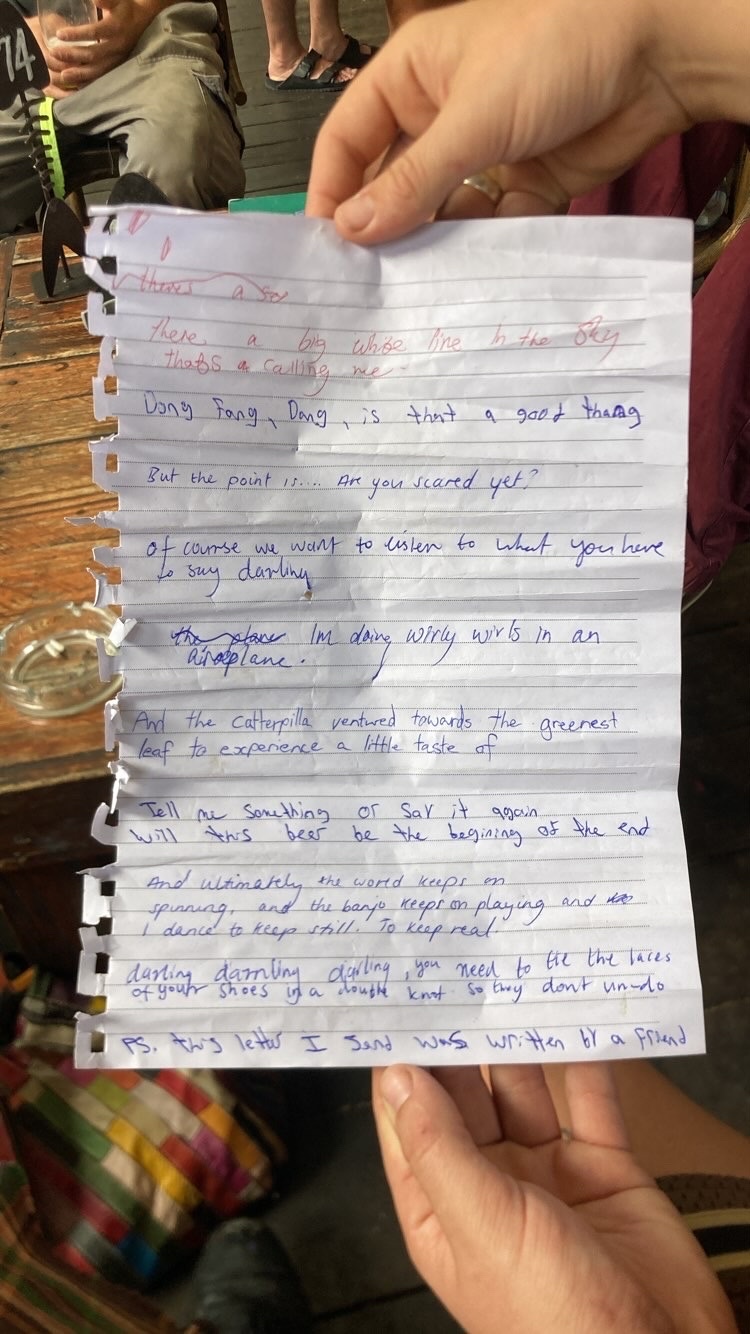 74
theres a so
there a big white line in the sky
thats a calling me.
Dong Fang, Dang, is that a good thang
But the point is.... Are you scared yet?
of course we want to listen to what you have
to say darling
the plane Im doing wirly wirls in an
airoplane.
And the Catterpilla ventured towards the greenest
leaf to experience a little taste of
Tell me something or Say it again
Will this beer be the begining of the end
And ultimately the world keeps on
spinning, and the banjo keeps on playing and
I dance to keep still. To keep real.
darling darnling darling, you need to tie the laces
of your shoes in a double knot so they dont un-do
PS. this letter I send was written by a friend